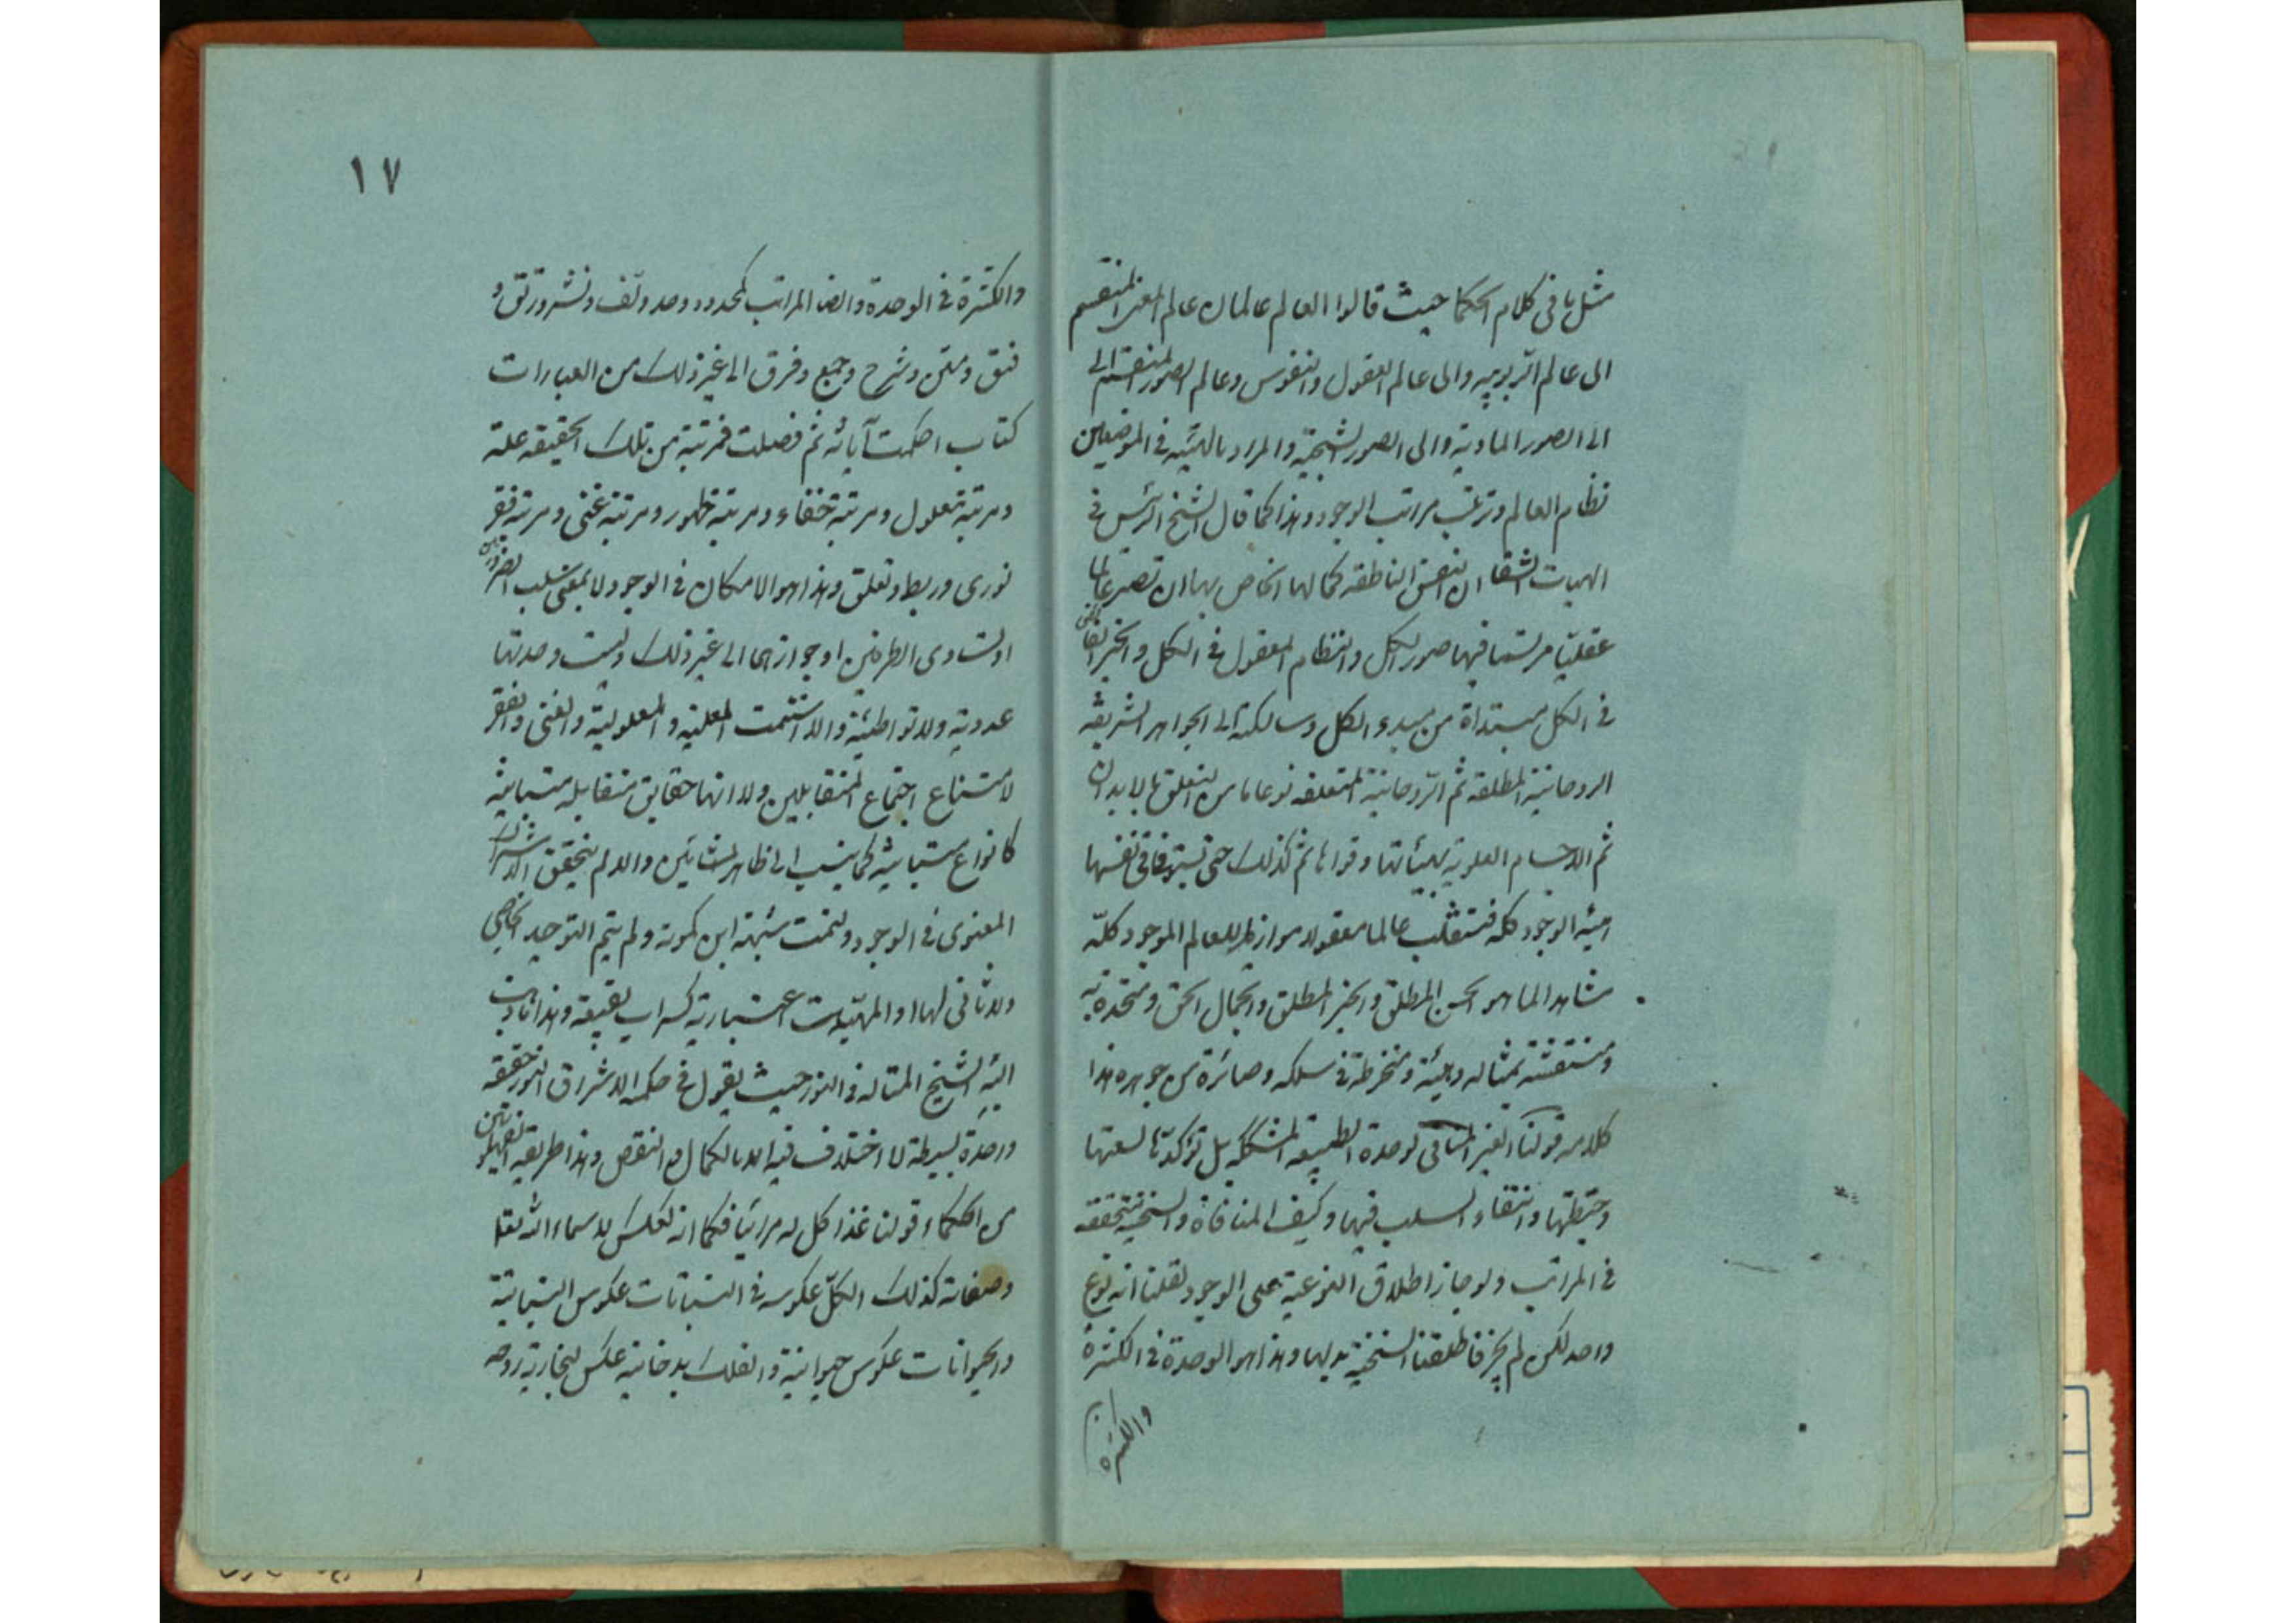 مثل ما فی کلام الحکما حیث قالوا العالم عالمان عالم المعنی المنقسم
الی عالم الربوبیه والی عالم العقول والنفوس وعالم الصور المنقسم الی
الی الصور المادیة والی الصور الشبحیة والمراد بالهیئیه فی الموضعین
نظام العالم وترتیب مراتب الوجود وهذا کما قال الشیخ الرئیس فی
الهیات الشفا ان النفس الناطقه کمالها الخاص بها ان تصیر عالما
عقلیّا مرتسما فیها صور الکل والنظام المعقول فی الکل والخیر الفائض
فی الکل مبتدأة من مبدء الکل وسالکة الی الجواهر الشریفه
الروحانیة المطلقه ثم الرّوحانیة المتعلقه نوعا ما من التعلق بالابدان
ثم الاجسام العلویة بهیئاتها وقواها ثم کذلک حتی تستوفی فی نفسها
هیئه الوجود کله فتنقلب عالما معقولا موازیا للعالم الموجود کلّه
مشاهدا لما هو الحسن المطلق والخیر المطلق والجمال الحق ومتحدة به
ومنتقشة بمثاله وهیئته ومنخرطة فی سلکه وصائرة من جوهره هذا
کلامه قولنا الغیر المنافی لوحدة الطبیعه المشککه بل تؤکدها لسعتها
وحیطتها وانتفاء السلب فیها وکیف المنافاة والسنخیة متحققه
فی المراتب ولو جاز اطلاق النوعیة علی الوجود لقلنا انه نوع
واحد لکن لم یجز فاطلقنا السنخیة بدلها وهذا هو الوحدة فی الکثرة
والکثرة
١٧
والکثرة فی الوحدة وایضا المراتب کمحدود وحد ولف ونشر ورتق و
فتق ومتن وشرح وجمع وفرق الی غیر ذلک من العبارات
کتاب احکمت آیاته ثم فصلت فمرتبة من تلک الحقیقه علة
ومرتبة معلول ومرتبة خفاء ومرتبة ظهور ومرتبة غنی ومرتبة فقر
نوری وربط وتعلق وهذا هو الامکان فی الوجود لا بمعنی سلب الضرورتین
او تساوی الطرفین او جوازهما الی غیر ذلک ولیست وحدتها
عددیة ولا تواطئیة والا استتمت العلیة والمعلولیة والغنی والفقر
لامتناع اجتماع المتقابلین ولا انها حقایق متقابله متباینه
کانواع متباینه کما ینسب الی ظاهر المشائین والا لم یتحقق الاشتراک
المعنوی فی الوجود ولتمت شبهة ابن کمونة ولم یتم التوحید الخاصی
ولا ثانی لها والمهیّات اعتباریة کسراب بقیعة وهذا ما ذهب
الیه الشیخ المتاله فی النور حیث یقول فی حکمه الاشراق النور حقیقه
واحدة بسیطة لا اختلاف فیه الا بالکمال والنقص وهذا طریقه الفهلویین
من الحکماء قولنا غذا کل له مرائیا فکما انه کعکس لاسماء الله تعالی
وصفاته کذلک الکلّ عکوسه فی النباتات عکوس النباتیة
والحیوانات عکوس حیوانیة والفلک بدخانیة عکس لبخاریة روحه